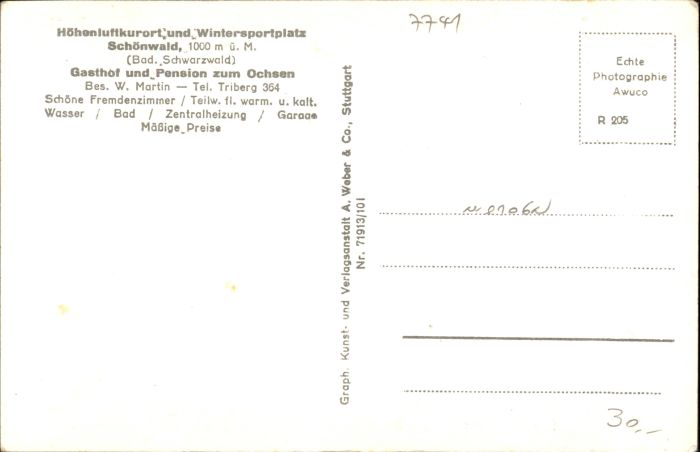 Höhenluftkurort und Wintersportplatz
Schönwald, 1000 m ü. M.
(Bad. Schwarzwald)
Gasthof und Pension zum Ochsen
Bes. W. Martin — Tel. Triberg 364
Schöne Fremdenzimmer / Teilw. fl. warm. u. kalt.
Wasser / Bad / Zentralheizung / Garage
Mäßige Preise
Graph. Kunst- und Verlagsanstalt A. Weber & Co., Stuttgart
Nr. 71913/101
7741
Echte
Photographie
Awuco
R 205
30,-